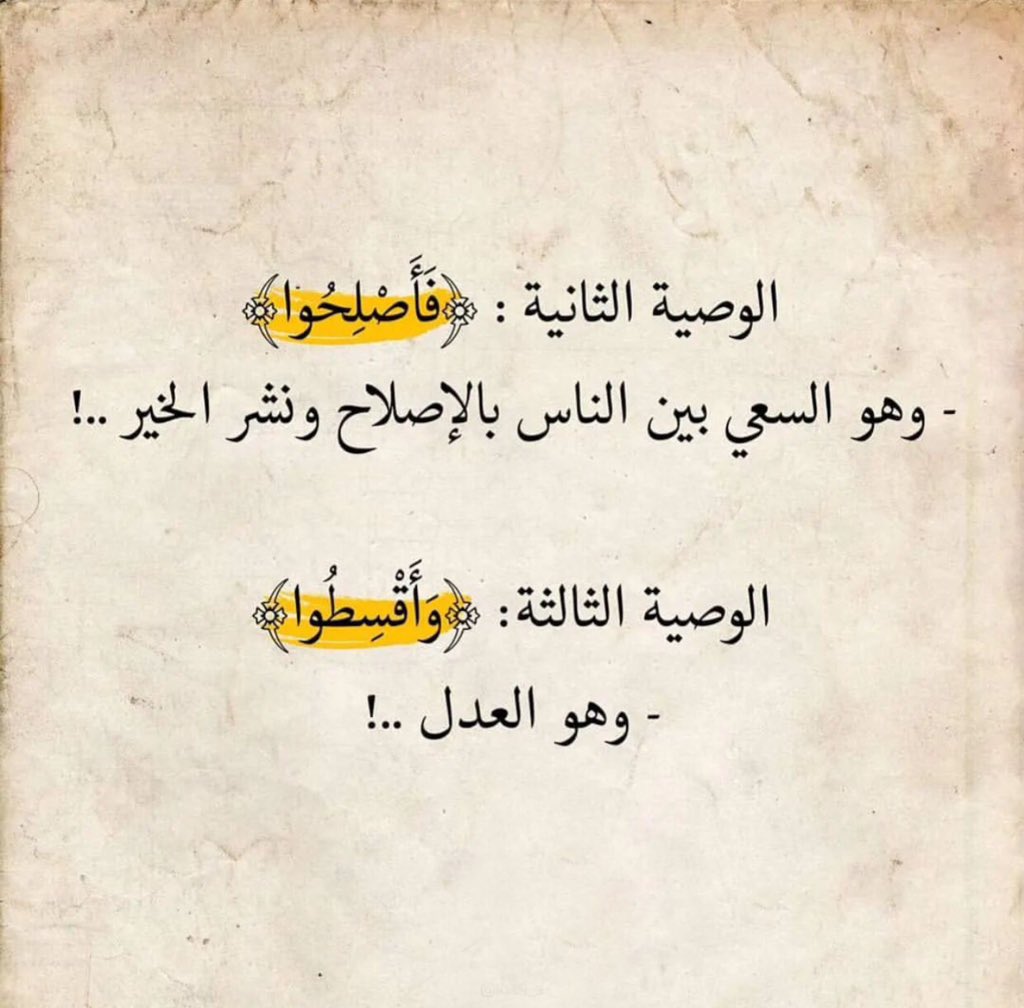 الوصية الثانية : ﴿فَأَصْلِحُوا﴾
- وهو السعي بين الناس بالإصلاح ونشر الخير ..!
الوصية الثالثة: ﴿وَأَقْسِطُوا﴾
- وهو العدل ..!